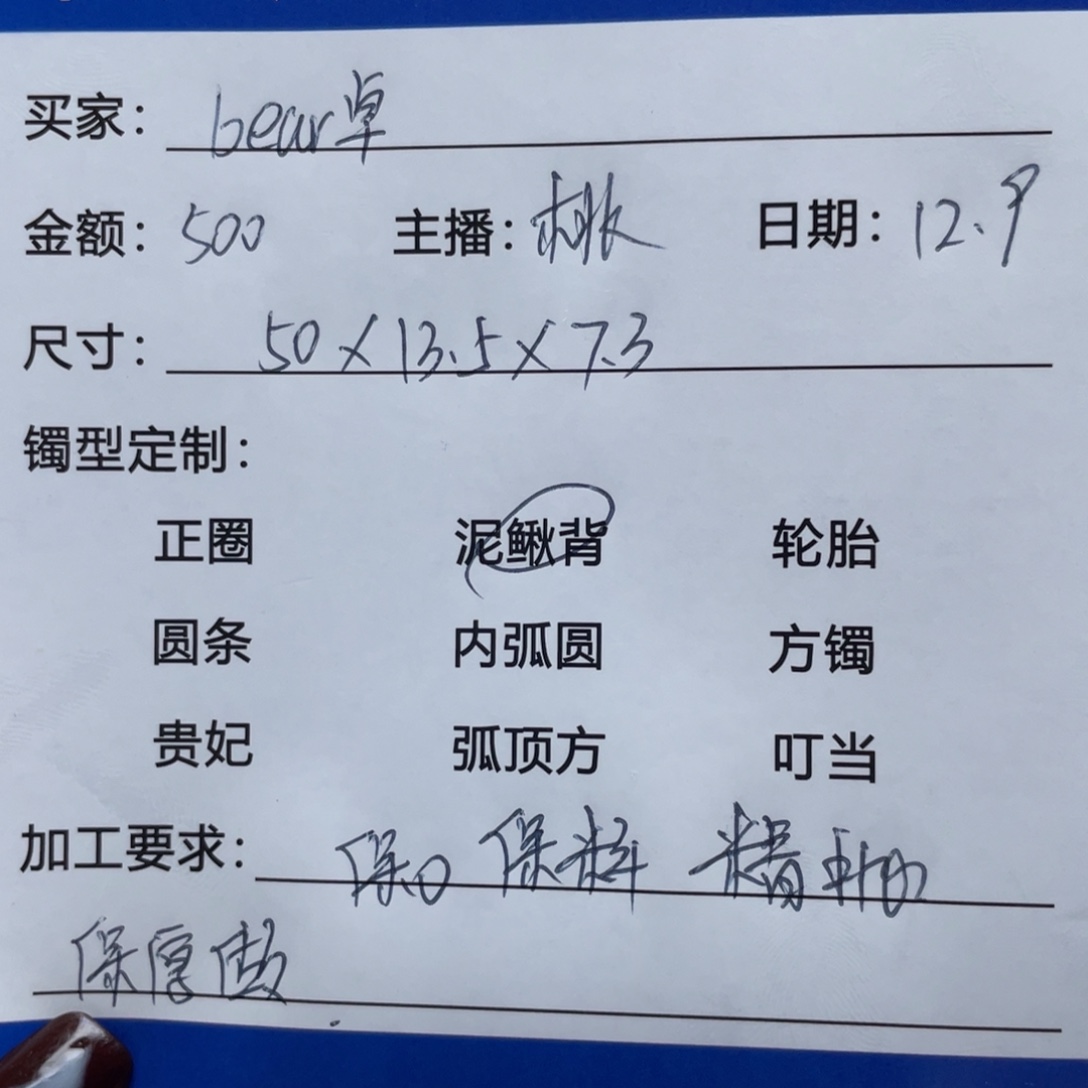 买家: bear卓
金额: 500 主播: 桃 日期: 12.9
尺寸: 50×13.5×7.3
镯型定制:
正圈 泥鳅背 轮胎
圆条 内弧圆 方镯
贵妃 弧顶方 叮当
加工要求: 保口 保料 精抛
保厚做